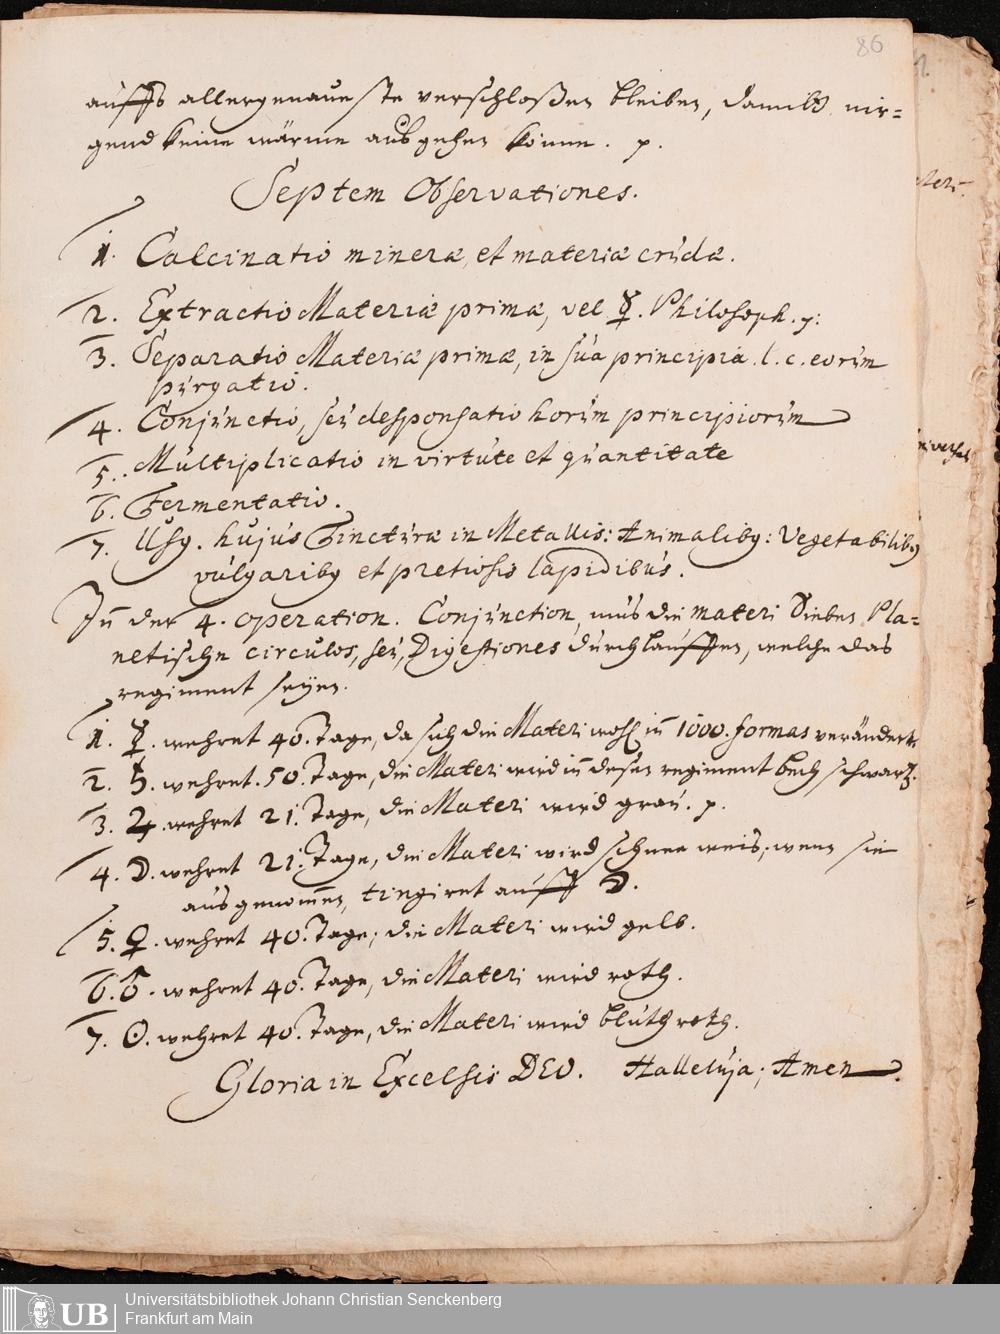 86
auffs allergenaueste verschloßen bleiben, damitt nir=
gend keine wärme ausgehen könne. p.
Septem Observationes.
1. Calcinatio mineræ, et materiæ crudæ.
2. Extractio Materiæ primæ, vel ☿. Philosoph. p:
3. Separatio Materiæ primæ, in sua principia. l. c. eorum
purgatio.
4. Conjunctio, seu desponsatio horum principiorum
5. Multiplicatio in virtute et quantitate
6. Fermentatio.
7. Usq. hujus Tincturæ in Metallis: Animalibq: Vegetabilibq
vulgaribq et pretiosis lapidibus.
In der 4. operation. Conjunction, mus die materi Sieben Pla=
netische circulos, seu, Digestiones durchlauffen, welche das
regiment seyen.
1. ☿. wehret 40. Tage, da sich die Materi wohl in 1000. formas verändert.
2. ♄. wehret. 50. Tage, die Materi wird in diesen regiment bech schwartz.
3. ♃. wehret 21. Tage, die Materi wird grau. p.
4. ☽. wehret 21. Tage, die Materi wird schnee weis, wenn sie
ausgenommen, tingiret auff ☽.
5. ♀. wehret 40. Tage; die Materi wird gelb.
6. ♂. wehret 40. Tage, die Materi wird roth.
7. ☉. wehret 40. Tage, die Materi wird bluth roth.
Gloria in Excelsis DEO. Halleluja; Amen.
UB
Universitätsbibliothek Johann Christian Senckenberg
Frankfurt am Main